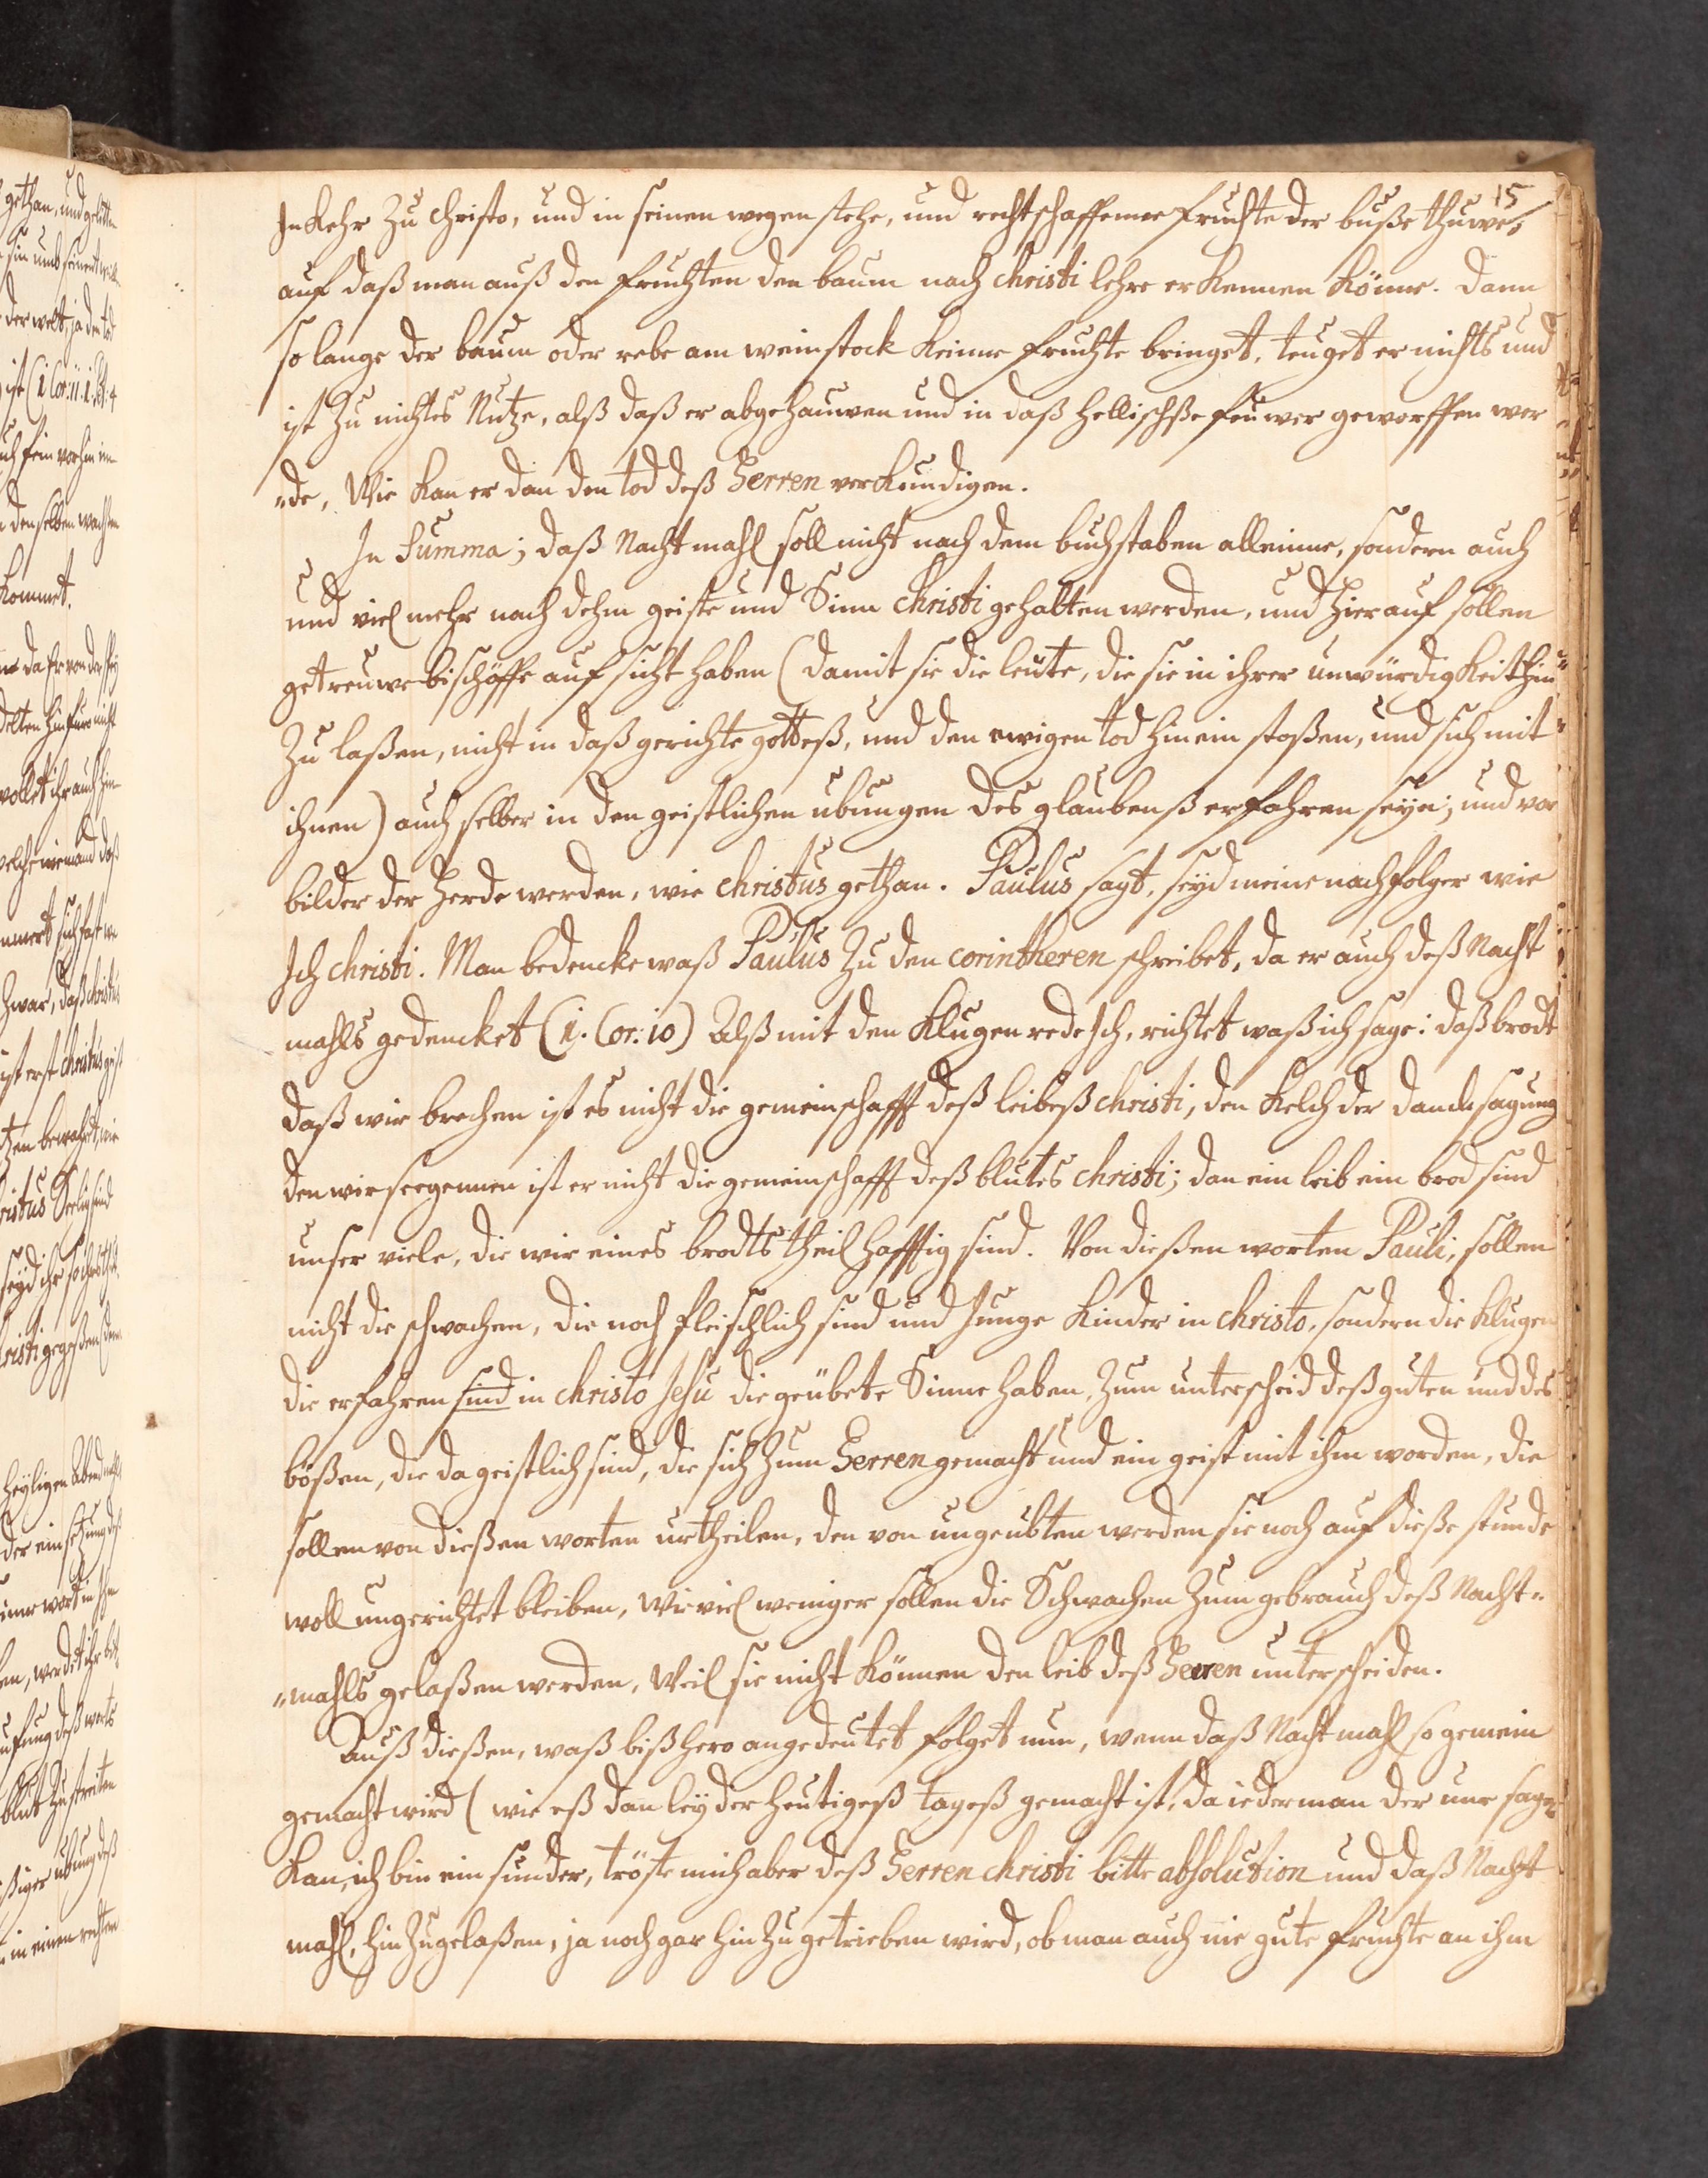 15
In Kehr zu Christo, und in seinen wegen stehe, und rechtschaffenne Fruchte der buße thuwe,
auf daß man auß den Fruchten den baum nach Christi lehre erkennen könne. Dann
so lange der baum oder rebe am weinstock keinne Fruchte bringet, teuget er nichts und
ist zu nichtes Nutze, alß daß er abgehauwen und in daß hellischße feuwer geworffen wer
„de, Wie kan er dan den tod deß Herren verkundigen.
In Summa; daß Nachtmahl soll nicht nach dem buchstaben alleinne, sondern auch
und viel mehr nach dehm geiste und Sinn Christi gehalten werden, und hierauf sollen
getreuwe bischöffe aufsicht haben (damit sie die leute, die sie in ihrer unwürdigkeit hin
zu laßen, nicht in daß gerichte gotteß, und den ewigen tod hinein stoßen, und sich mit
ihnen) auch selber in den geistlichen ubungen des glaubenß erfahren seyn; und vor
bilder der Herde werden, wie Christus gethan. Paulus sagt, seyd meine nachfolger wie
Ich Christi. Man bedencke waß Paulus zu den corintheren schreibet, da er auch deß Nacht
mahls gedencket (1. Cor: 10) Alß mit den Klugen rede Ich, richtet waß ich sage: daß brodt
daß wir brechen ist es nicht die gemeinschafft deß leibeß Christi, den Kelch der dancksagung
den wir seegennen ist er nicht die gemeinschafft deß blutes Christi; dan ein leib ein brod sind
unser viele, die wir eines brodts theilhafftig sind. Von dießen worten Pauli, sollen
nicht die schwachen, die noch fleischlich sind und Junge Kinder in Christo, sondern die Klugen
die erfahren sind in Christo Jesu die geübete Sinne haben, zum unterscheid deß guten und des
bößen, die da geistlich sind, die sich zum Herren gemacht und ein geist mit ihm worden, die
sollen von dießen worten urtheilen, den von ungeubten werden sie noch auf dieße stunde
woll ungerichtet bleiben, wie viel weniger sollen die Schwachen zum gebrauch deß Nacht„
„mahls gelaßen werden, Weil sie nicht können den leib deß Herren unterscheiden.
Auß dießen, waß bißhero angedeutet folget nun, wenn daß Nachtmahl so gemein
gemacht wird (wie eß dan leyder heutigeß tageß gemacht ist, da iederman der nur sagen
kan, ich bin ein sunder, tröste mich aber deß Herren Christi bitte absolution und daß Nacht
mahl, hinzugelaßen, ja noch gar hinzu getrieben wird, ob man auch nie gute fruchte an ihm